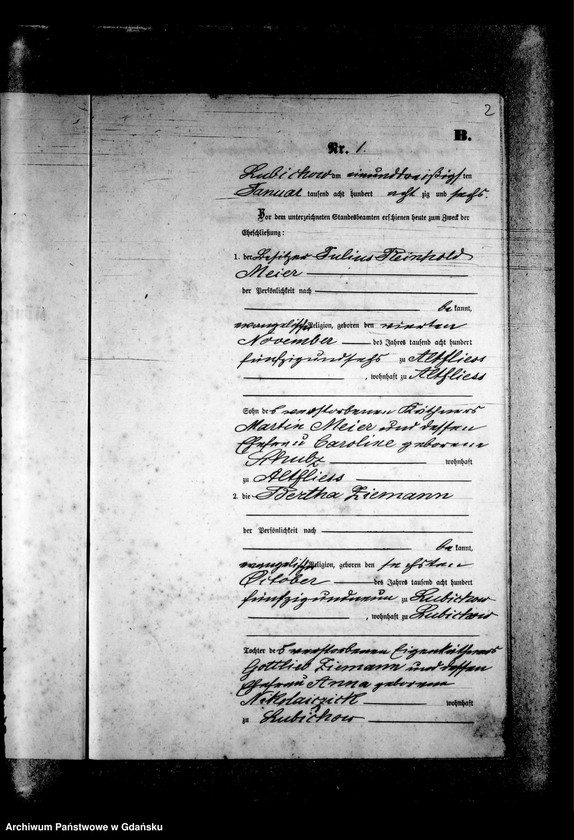 2
B.
Nr. 1.
Lubichow am einunddreißigsten
Januar tausend acht hundert acht zig und sechs.
Vor dem unterzeichneten Standesbeamten erschienen heute zum Zweck der
Eheschließung:
1. der Besitzer Julius Reinhold
Meier
der Persönlichkeit nach
be kannt,
evangelischer Religion, geboren den vierten
November des Jahres tausend acht hundert
fünfzigundsechs zu Altfliess
, wohnhaft zu Altfliess
Sohn des verstorbenen Käthners
Martin Meier und dessen
Ehefrau Caroline geborene
Schulz wohnhaft
zu Altfliess
2. die Bertha Ziemann
der Persönlichkeit nach
be kannt,
evangelischer Religion, geboren den sechsten
October des Jahres tausend acht hundert
fünfzigundneun zu Lubichow
, wohnhaft zu Lubichow
Tochter des verstorbenen Eigenkäthners
Gottlieb Ziemann und dessen
Ehefrau Anna geborene
Nikolaiczick wohnhaft
zu Lubichow
Archiwum Państwowe w Gdańsku